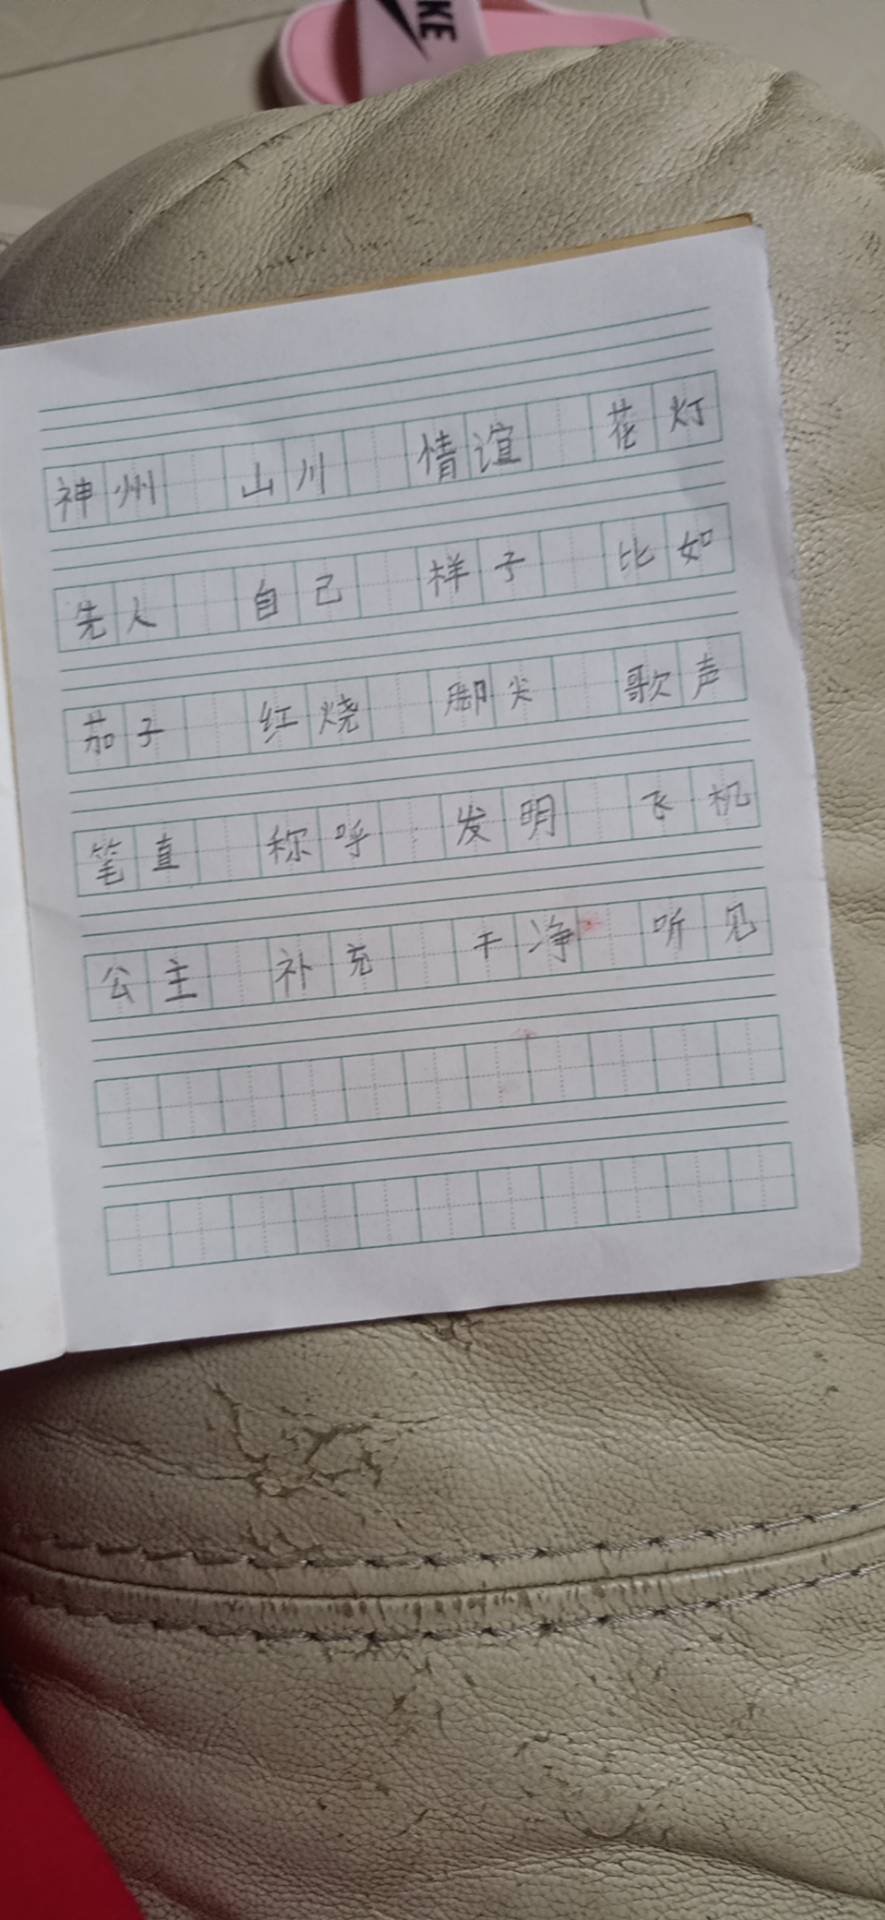 KE
神州 山川 情谊 花灯
先人 自己 样子 比如
茄子 红烧 脚尖 歌声
笔直 称呼 发明 飞机
公主 补充 干净 听见